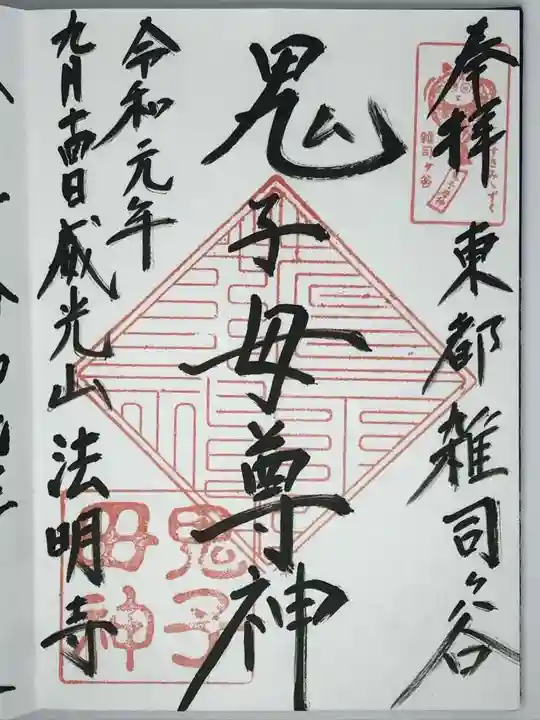 奉拝 東都雑司ヶ谷
鬼子母尊神
令和元年
九月十四日 威光山 法明寺
すすきみみずく
雑司ヶ谷
鬼子
母神